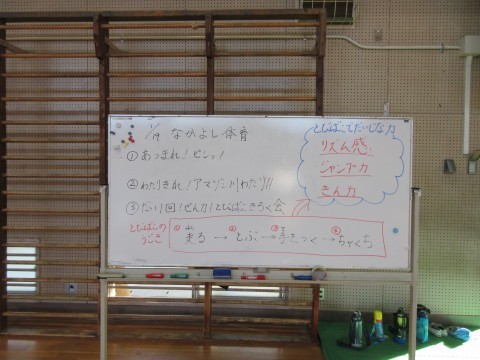 1/19 なかよし体育
①あつまれ！ピンッ！
②わたりきれ！アマゾン川わたり!!
③だい1回！ぜん力！とびばこきろく会
とびばこでだいじな力
リズム感
ジャンプ力
きん力
とびばこの
うごき
①走る→②とぶ→③手をつく→④ちゃくち